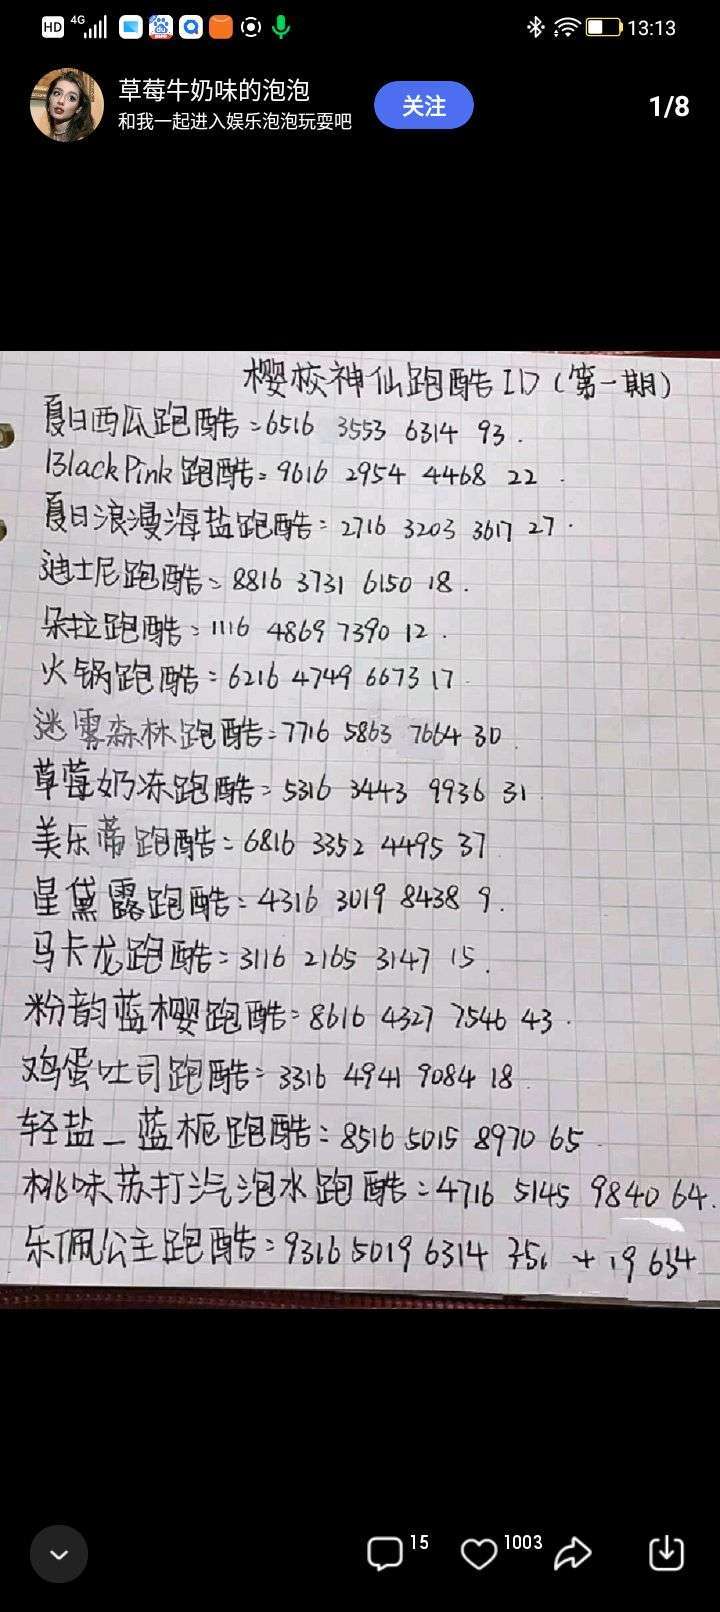 HD 4G 13:13
草莓牛奶味的泡泡
和我一起进入娱乐泡泡玩耍吧
关注
1/8
樱校神仙跑酷ID(第一期)
夏日西瓜跑酷=6516 3553 6314 93.
BlackPink跑酷=9616 2954 4468 22.
夏日浪漫海盐跑酷=2716 3203 3617 27.
迪士尼跑酷=8816 3731 6150 18.
朵拉跑酷=1116 4869 7390 12.
火锅跑酷=6216 4749 6673 17
迷雾森林跑酷=7716 5863 7664 30
草莓奶冻跑酷=5316 3443 9936 31
美乐蒂跑酷=6816 3352 4495 37
星黛露跑酷=4316 3019 8438 9.
马卡龙跑酷=3116 2165 3147 15.
粉韵蓝樱跑酷=8616 4327 7546 43.
鸡蛋吐司跑酷=3316 4941 9084 18
轻盐_蓝栀跑酷=8516 5015 8970 65.
桃味苏打汽泡水跑酷=4716 5145 9840 64.
乐佩公主跑酷=9316 5019 6314
15
1003